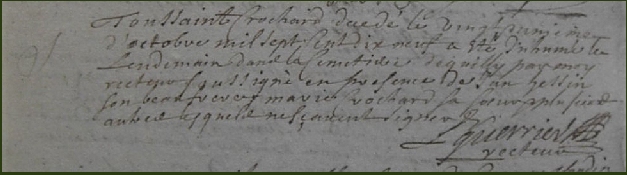 Toussaint Crochard decedé le vingt uniéme
d'octobre mil sept cent dix neuf a eté Inhumé le
Lendemain dans le Cemetiere de quilly par moy
recteur soussigné en presence de Jan
son beau frere marie Crochard sa soeur plusieurs
autres lesquels ne sçavent signer
Guerrier
recteur